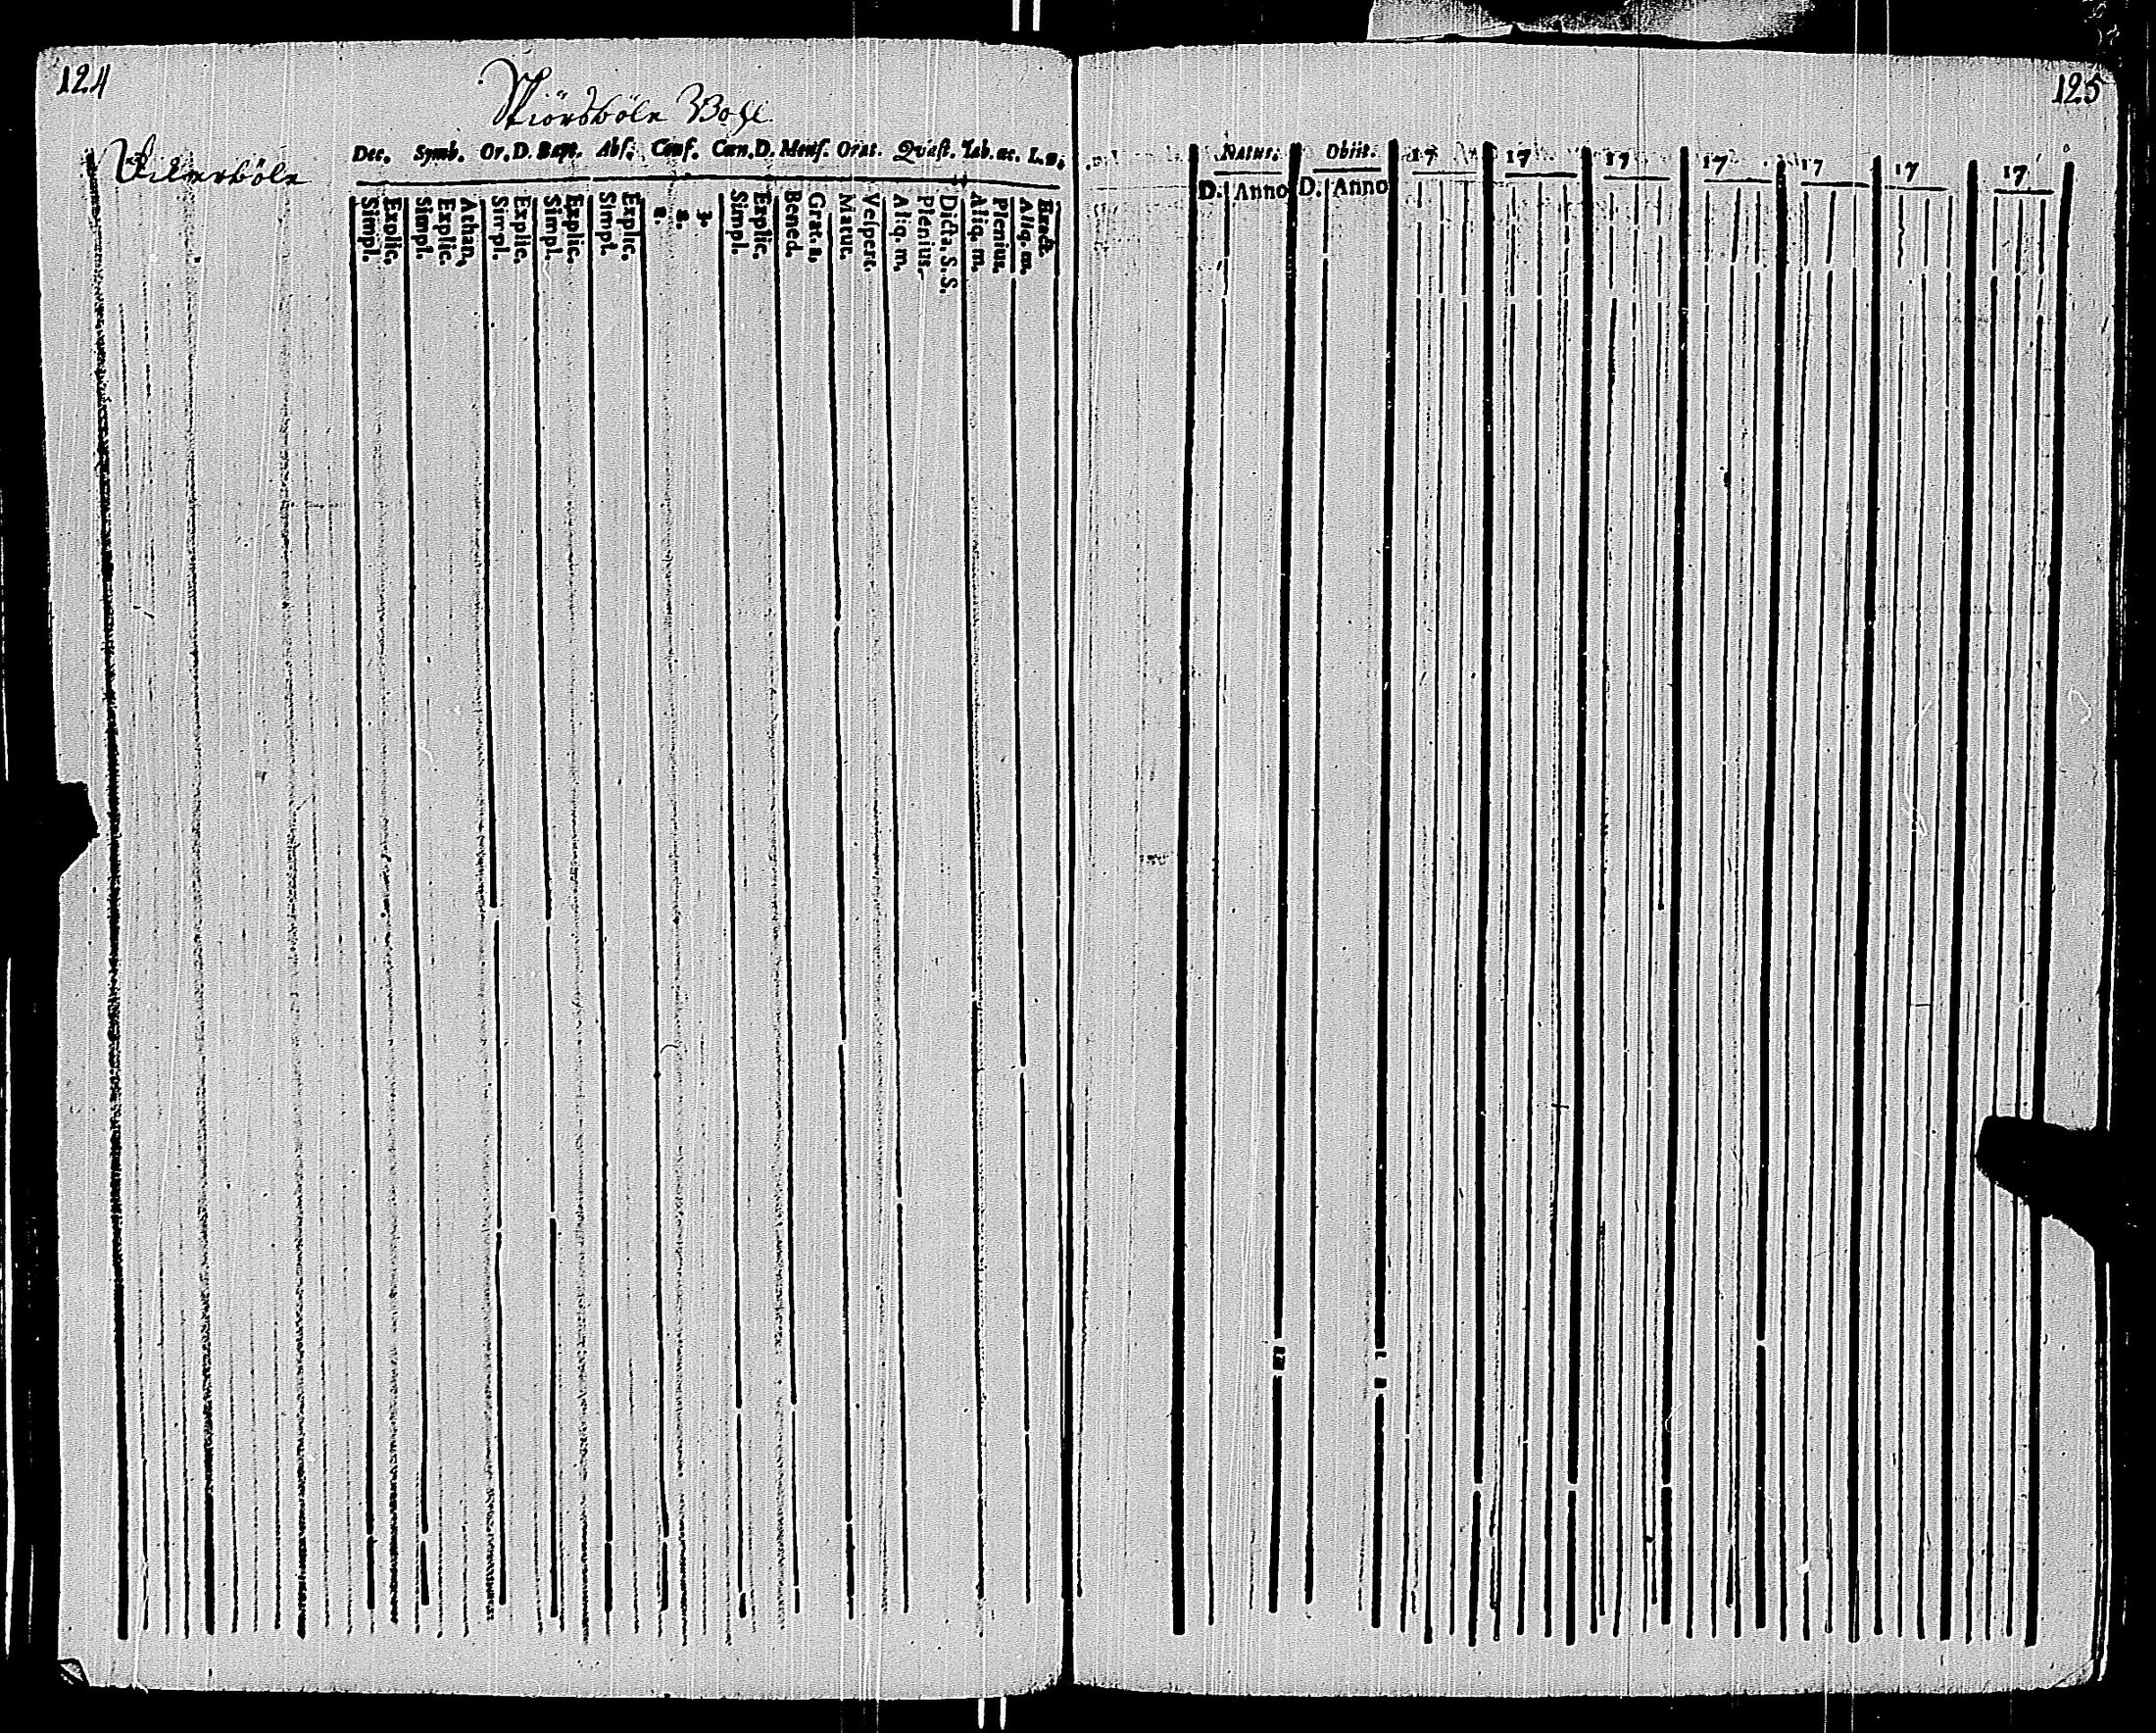 124
125
Wikerböle
Dec. Symb. Or. D. Bapt. Abs. Conf. Cœn. D. Mens. Orat. Quæst. Tab. œc.
Natus. Obiit. 17 17 17 17 17 17 17
D. Anno D. Anno
Simpl. Explic. Simpl. Explic. Athan. Simpl. Explic. Simpl. Explic. Simpl. Explic. 1. 2. 3. Simpl. Explic. Bened. Grat. a. Matut. Vespert. Aliq. m. Plenius. Dicta. S. S. Aliq. m. Plenius. Aliq. m. Exacte.